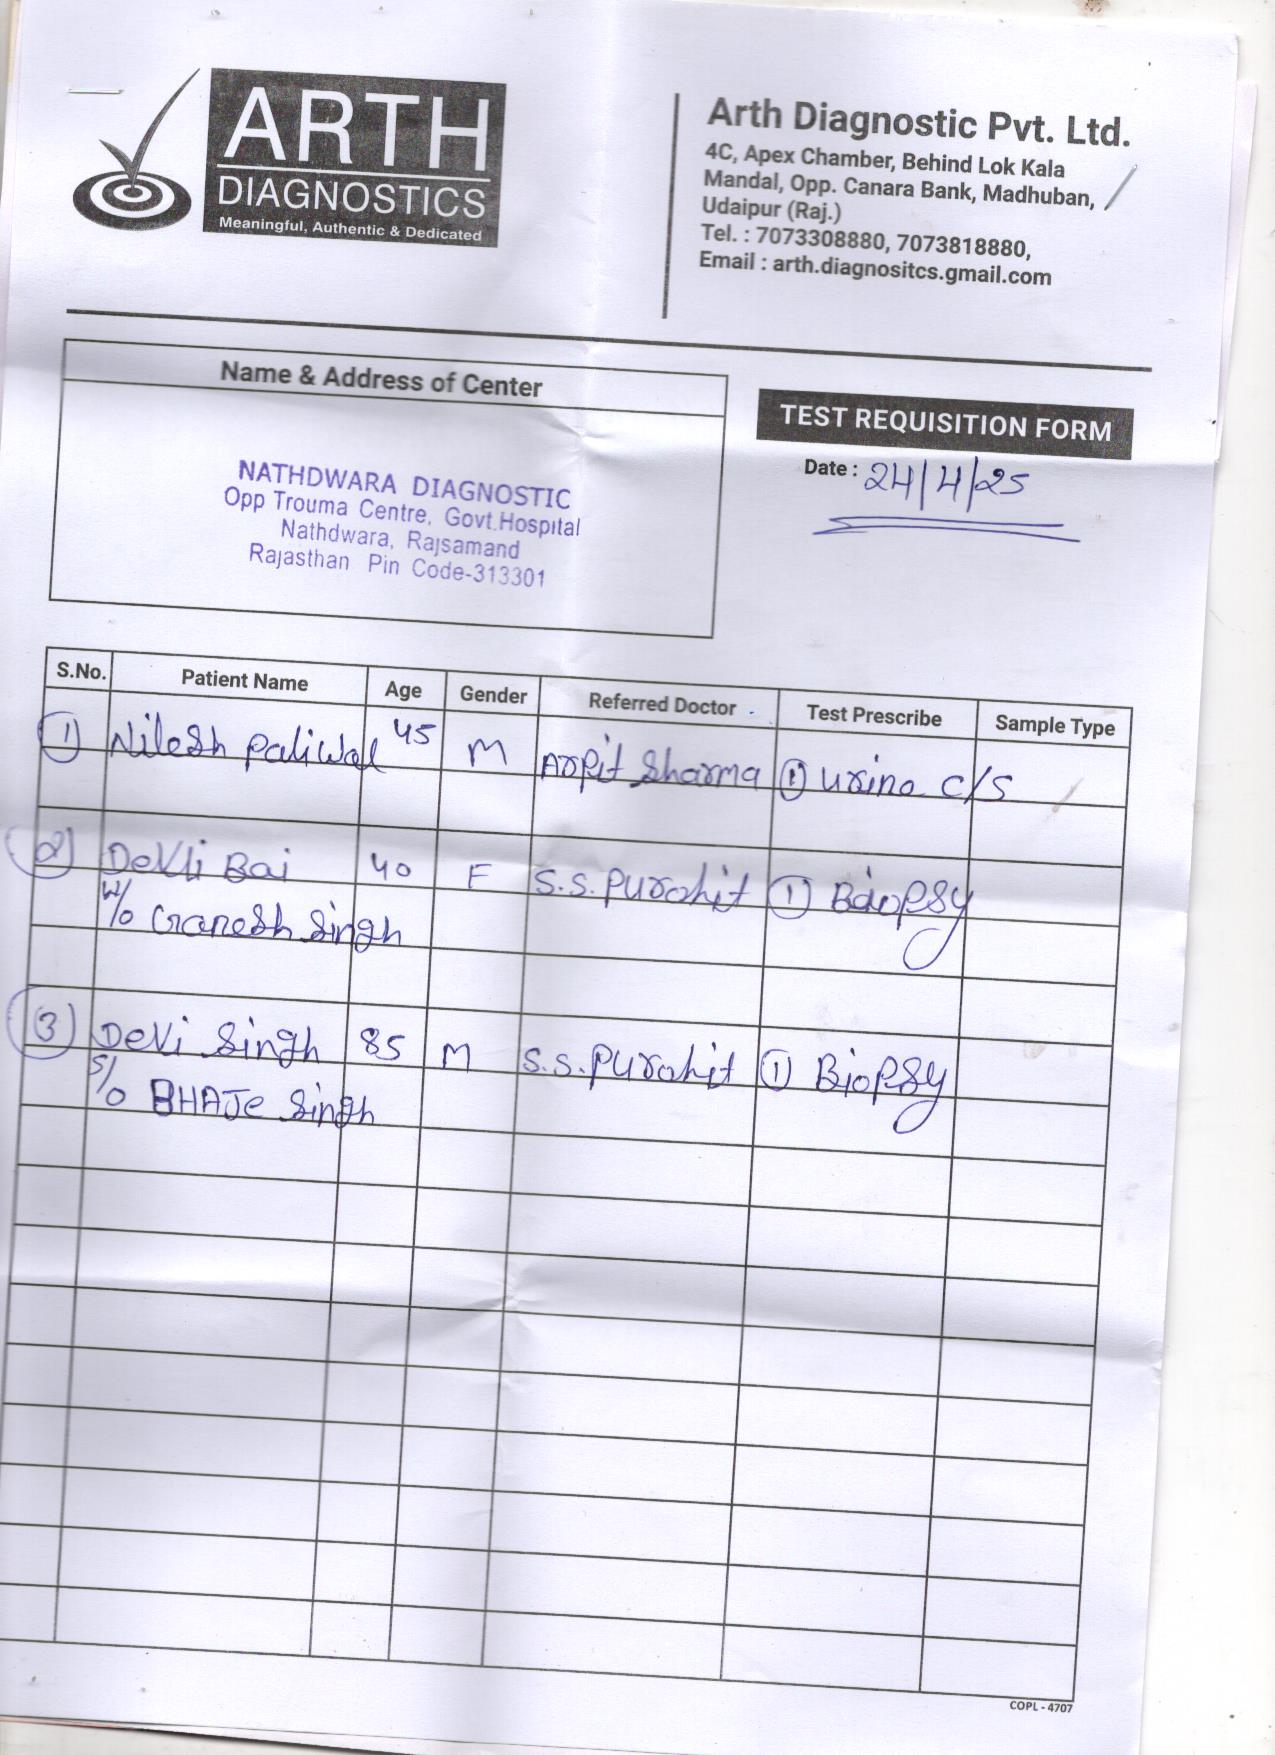 ARTH
DIAGNOSTICS
Meaningful, Authentic & Dedicated
Arth Diagnostic Pvt. Ltd.
4C, Apex Chamber, Behind Lok Kala
Mandal, Opp. Canara Bank, Madhuban,
Udaipur (Raj.)
Tel. : 7073308880, 7073818880,
Email : arth.diagnositcs.gmail.com
Name & Address of Center
NATHDWARA DIAGNOSTIC
Opp Trouma Centre, Govt.Hospital
Nathdwara, Rajsamand
Rajasthan Pin Code-313301
TEST REQUISITION FORM
Date : 24/4/25
S.No. Patient Name Age Gender Referred Doctor Test Prescribe Sample Type
1) Nilesh Paliwal 45 M Arpit Sharma 1) Urine C/S
2) Devli Bai 40 F S.S. Purohit 1) Biopsy
W/o Ganesh Singh
3) Devi Singh 85 M S.S. Purohit 1) Biopsy
S/o BHAJe Singh
COPL - 4707